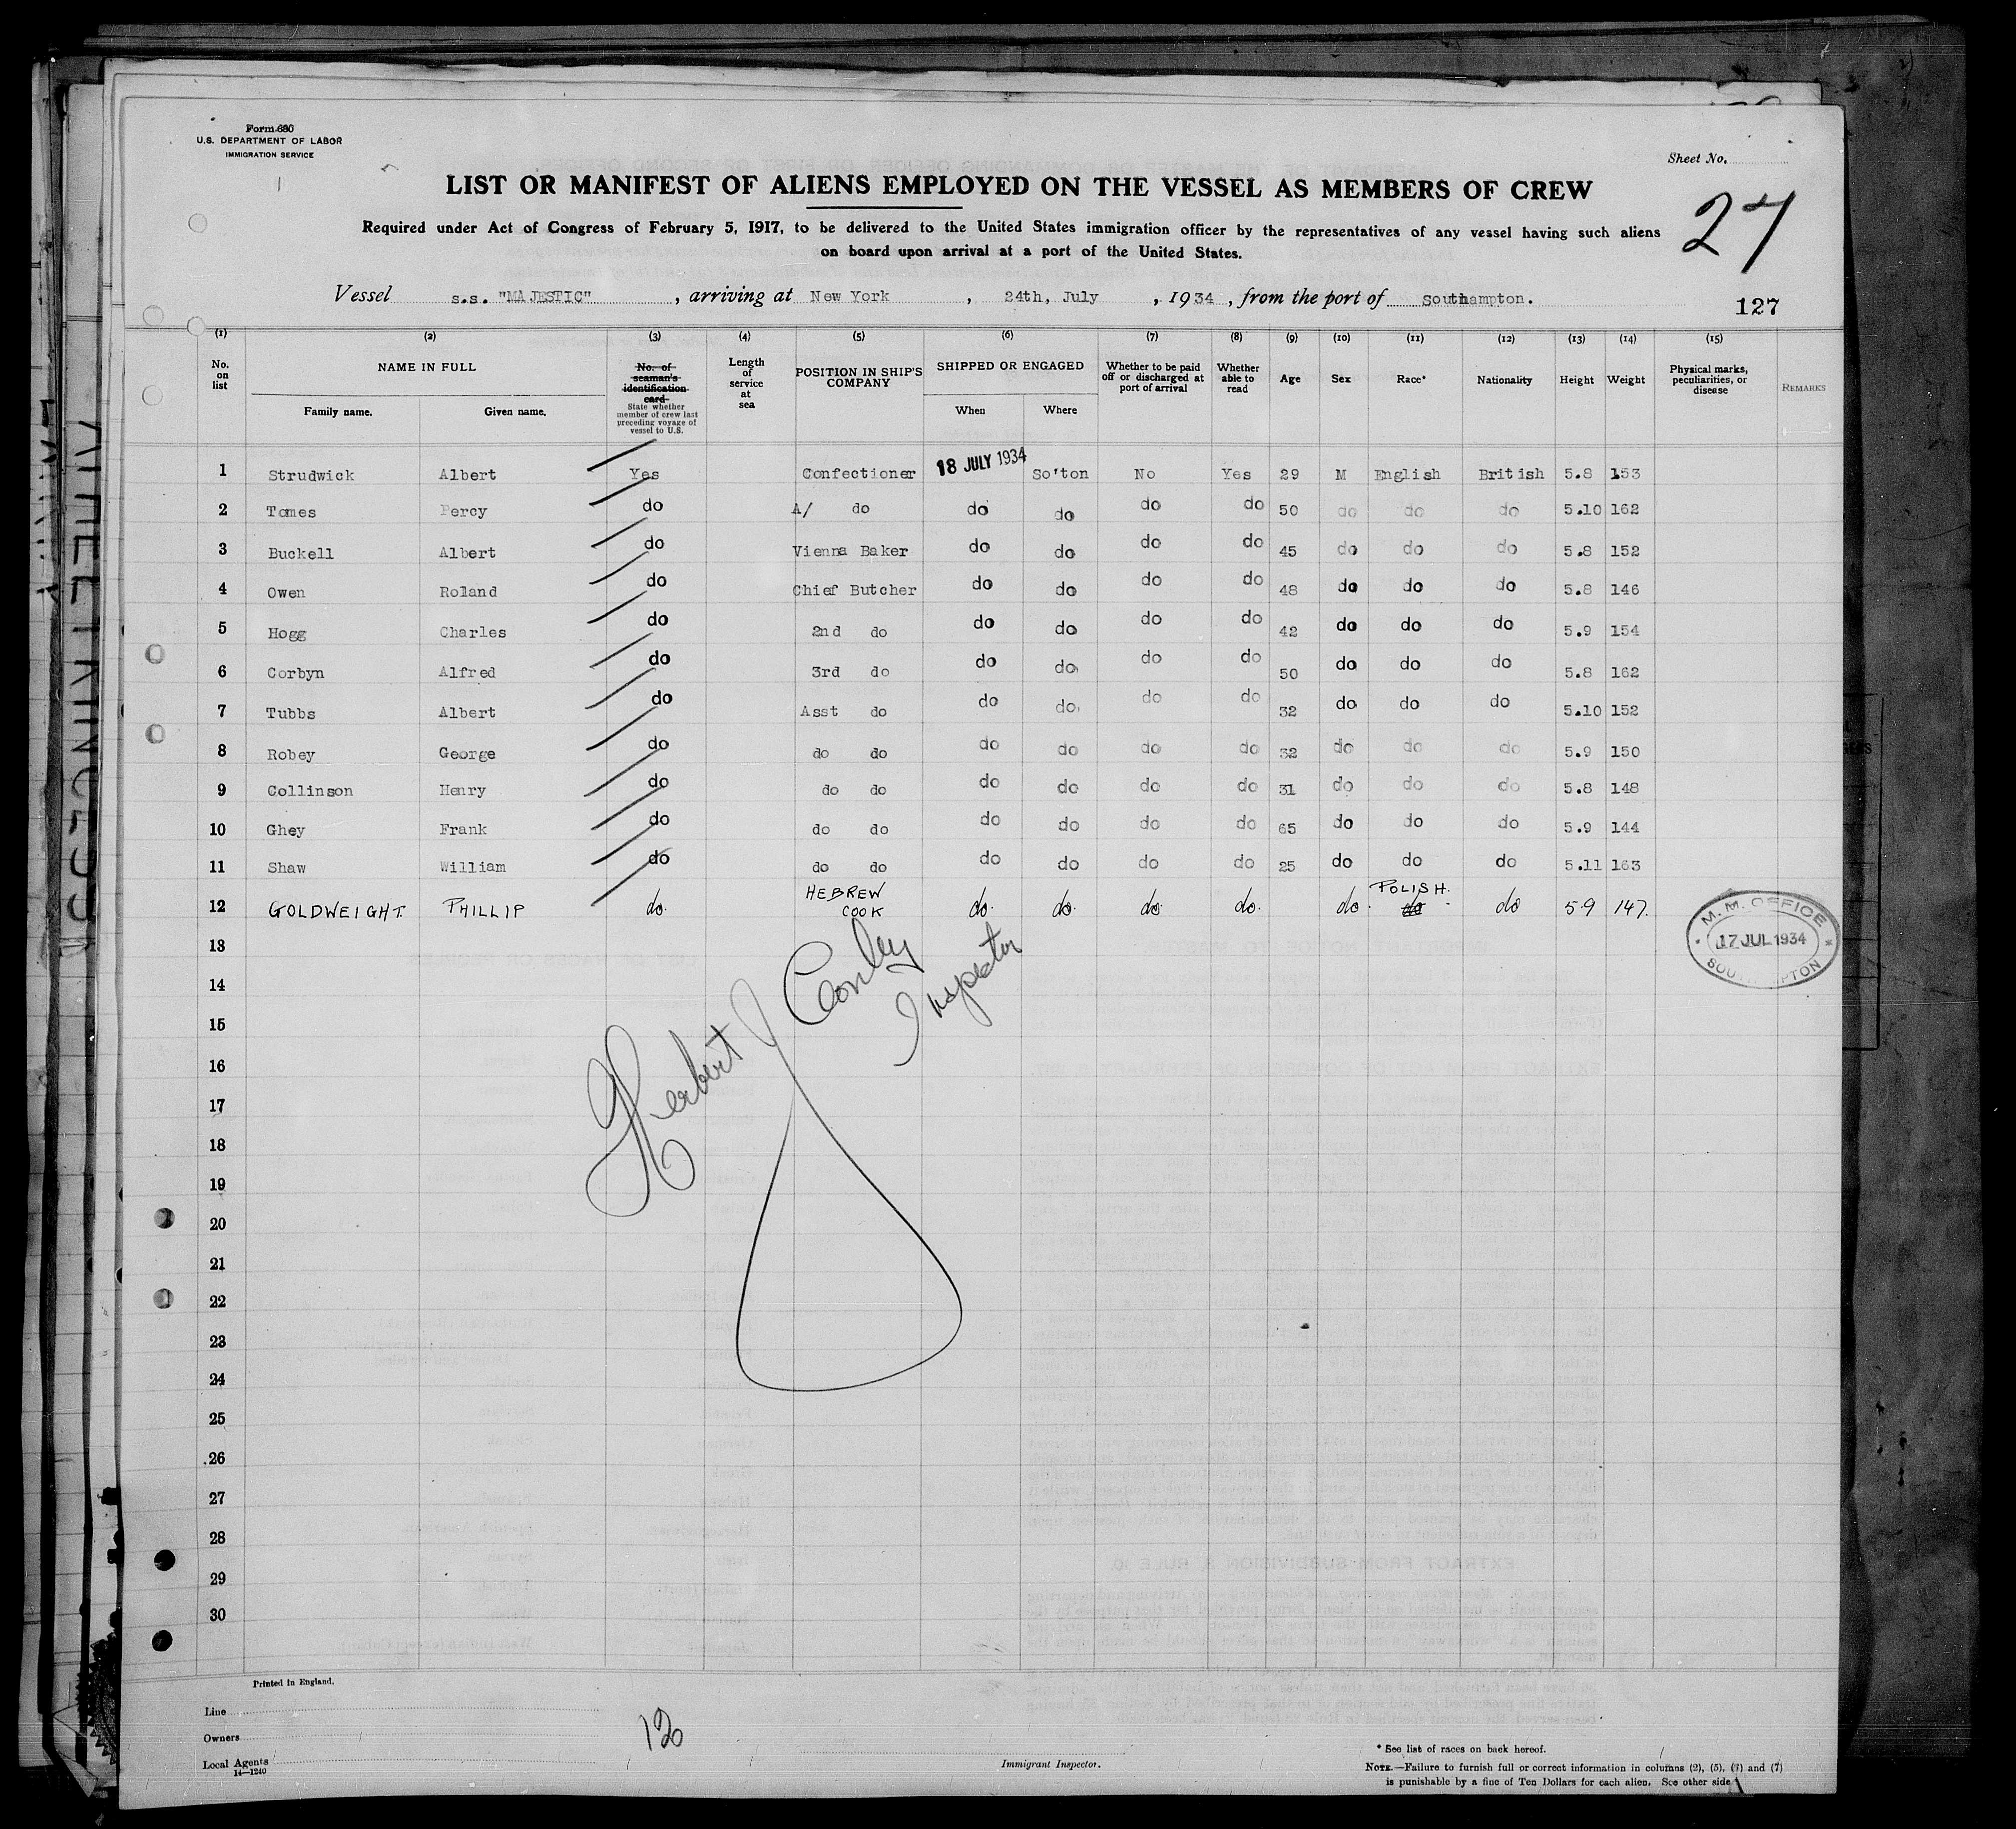 Form 680
U.S. DEPARTMENT OF LABOR
IMMIGRATION SERVICE
Sheet No.
27
LIST OR MANIFEST OF ALIENS EMPLOYED ON THE VESSEL AS MEMBERS OF CREW
Required under Act of Congress of February 5, 1917, to be delivered to the United States immigration officer by the representatives of any vessel having such aliens
on board upon arrival at a port of the United States.
Vessel s.s. "MAJESTIC" , arriving at New York , 24th, July , 1934 , from the port of Southampton.
127
(1) (2) (3) (4) (5) (6) (7) (8) (9) (10) (11) (12) (13) (14) (15)
No. on list
NAME IN FULL
Family name. Given name.
No. of seaman's identification card
State whether member of crew last preceding voyage of vessel to U.S.
Length of service at sea
POSITION IN SHIP'S COMPANY
SHIPPED OR ENGAGED
When Where
Whether to be paid off or discharged at port of arrival
Whether able to read
Age
Sex
Race*
Nationality
Height
Weight
Physical marks, peculiarities, or disease
REMARKS
1 Strudwick Albert Yes Confectioner 18 JULY 1934 So'ton No Yes 29 M English British 5.8 153
2 Tomes Percy do A/ do do do do do 50 do do do 5.10 162
3 Buckell Albert do Vienna Baker do do do do 45 do do do 5.8 152
4 Owen Roland do Chief Butcher do do do do 48 do do do 5.8 146
5 Hogg Charles do 2nd do do do do do 42 do do do 5.9 154
6 Corbyn Alfred do 3rd do do do do do 50 do do do 5.8 162
7 Tubbs Albert do Asst do do do do do 32 do do do 5.10 152
8 Robey George do do do do do do do 32 do do do 5.9 150
9 Collinson Henry do do do do do do do 31 do do do 5.8 148
10 Ghey Frank do do do do do do do 65 do do do 5.9 144
11 Shaw William do do do do do do do 25 do do do 5.11 163
12 GOLDWEIGHT PHILLIP do. HEBREW COOK do. do. do. do. do. POLISH. do do 5.9 147.
M. M. OFFICE
17 JUL 1934
13
14
15
16
17
18
19
20
21
22
23
24
25
26
27
28
29
30
Herbert J Conley
Inspector
Printed in England.
Line
Owners
Local Agents
14—1240
Immigrant Inspector.
* See list of races on back hereof.
NOTE.—Failure to furnish full or correct information in columns (2), (5), (6) and (7)
is punishable by a fine of Ten Dollars for each alien. See other side